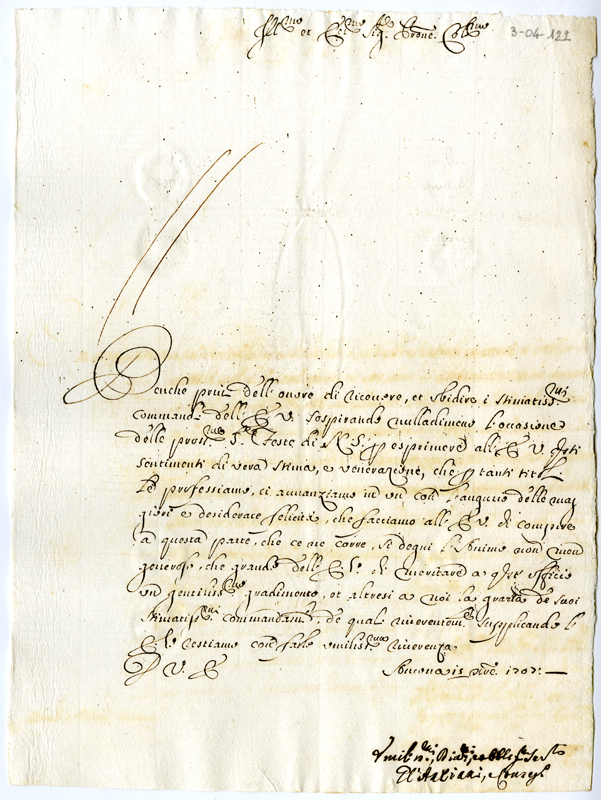 Ill.mo et Ecc.mo Sig.r Sig.r Prone Col.mo
3-04-122
Benche privi dell'onore di ricevere, et obidire i stimatiss.mi
commandi dell'E. V. sospirando nulladimeno l'occasione
delle pross.me S.te Feste di N. S. p esprimere all'E. V. q.sti
sentimenti di vera stima, e venerazione, che p tanti titoli
le professiamo, ci avanziamo in un con l'augurio delle mag
giori e desiderate felicità, che facciamo all'E. V. di compire
a questa parte, che ce ne corre, si degni l'Animo non men
generoso, che grande dell'E. V. di meritare a q.sto officio
un gentiliss.mo gradimento, et altresi a noi la grazia de suoi
stimatiss.mi commandam.ti, de quali riverentem.te supplicando l'
E. V. restiamo con farle umiliss.ma riverenza.
D. V. E.
15 Xbre 1707.
Umil.mi, Di
Gl'Anziani, e Conseg.